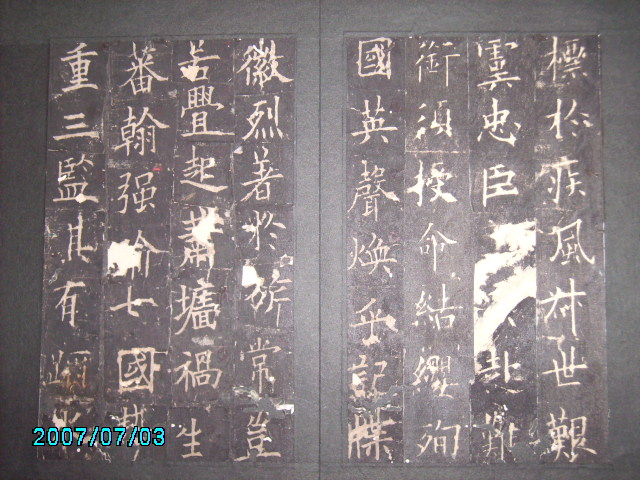 標於疾風叔世艱
虞忠臣赴難
銜須授命結纓殉
國英聲煥乎記牒
徽烈著於旂常豈
若舋起蕭墻禍生
蕃翰强踰七國勢
重三監其有蹈水
2007/07/03